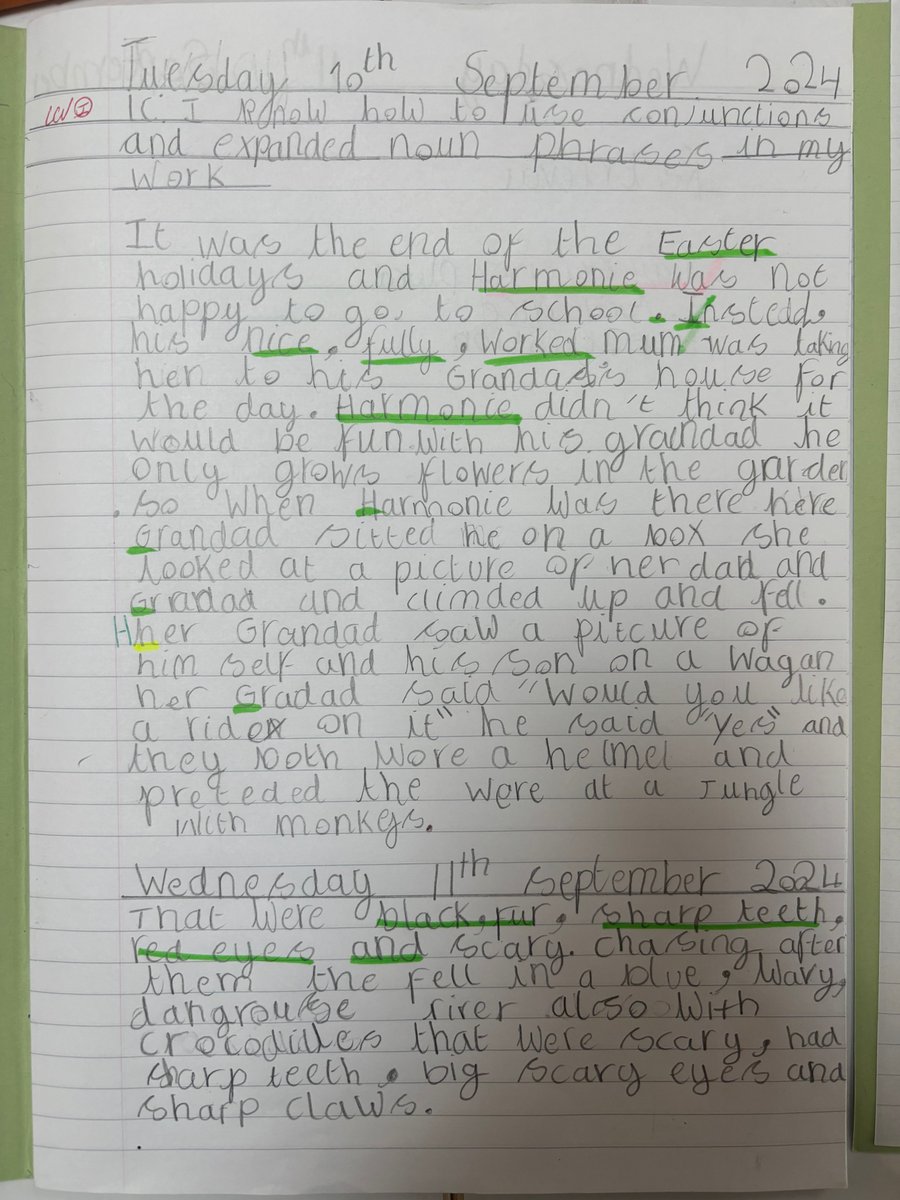 Tuesday 10th September 2024
IC. I know how to use conjunctions
and expanded noun phrases in my
work
It was the end of the Easter
holidays and Harmonie was not
happy to go to school. Instead,
his nice, fully, worked mum was taking
her to his Grandad's house for
the day. Harmonie didn't think it
would be fun with his graindad he
only grows flowers in the garder
. so when Harmonie was there here
Grandad sitted he on a box she
looked at a picture of her dad and
Gradad and climded up and fell.
Hher Grandad saw a pitcure of
him self and his son on a wagan
her Gradad said "would you like
a ride on it" he said "yes" and
they both wore a helmel and
preteded the were at a Jungle
with monkeys.
Wednesday 11th september 2024
That were black, fur, sharp teeth,
red eyes and scary. chasing after
them the fell in a blue, wavy,
dangrouse river also with
crocodilles that were scary, had
sharp teeth, big scary eyes and
sharp claws.